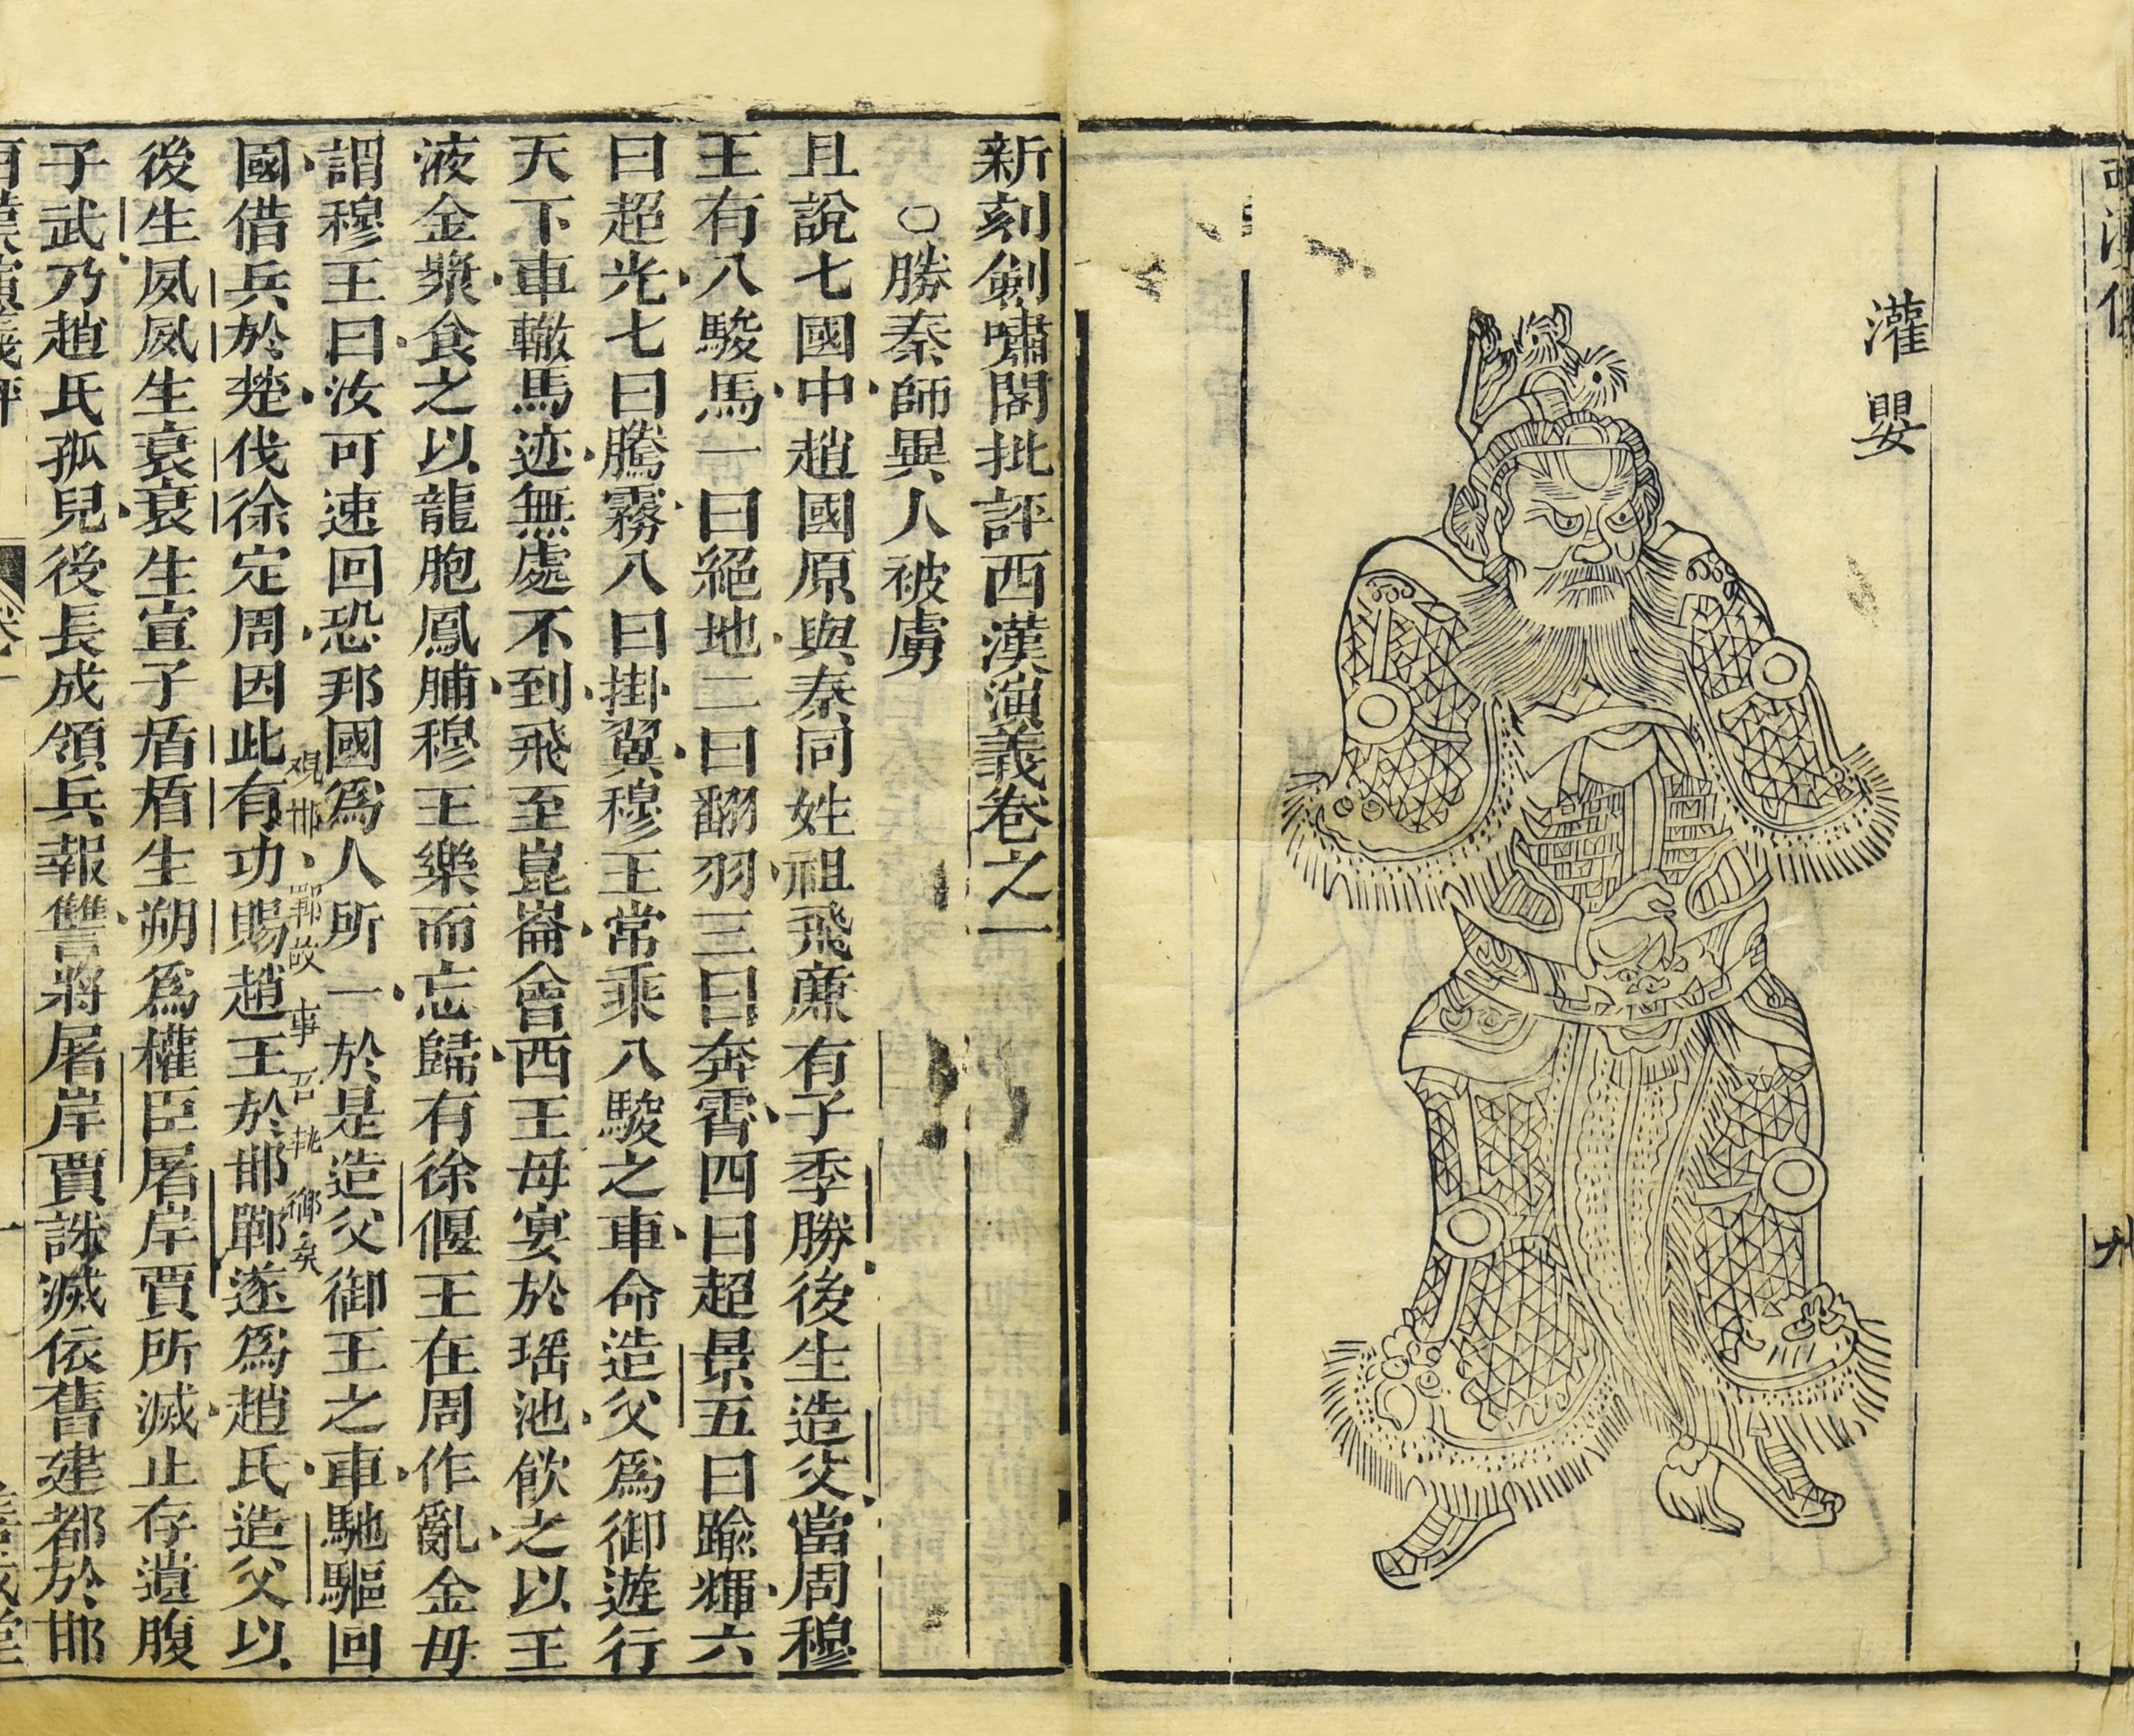 灌嬰
九
新刻劍嘯閣批評西漢演義卷之一
○勝秦師異人被虜
且說七國中趙國原與秦同姓祖飛廉有子季勝後生造父當周穆
王有八駿馬一曰絕地二曰翻羽三曰奔霄四曰超景五曰踰輝六
曰超光七曰騰霧八曰掛翼穆王常乘八駿之車命造父爲御遊行
天下車轍馬迹無處不到飛至崑崙會西王母宴於瑶池飮之以王
液金漿食之以龍胞鳳脯穆王樂而忘歸有徐偃王在周作亂金母
謂穆王曰汝可速回恐邦國爲人所一於是造父御王之車馳驅回
國借兵於楚伐徐定周因此有功賜趙王於邯鄲遂爲趙氏造父以
後生夙夙生衰衰生宣子盾盾生朔爲權臣屠岸賈所滅止存遺腹
子武乃趙氏孤兒後長成領兵報讐將屠岸賈誅滅依舊建都於邯
西漢演義評
卷一
一